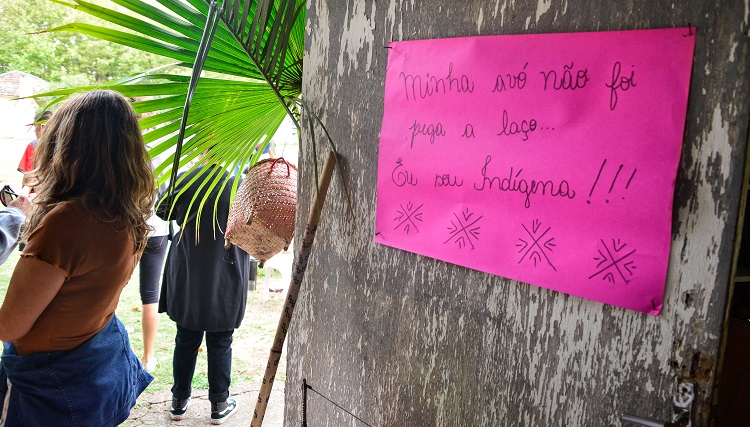 Minha avó não foi
pega a laço...
Eu sou Indígena!!!